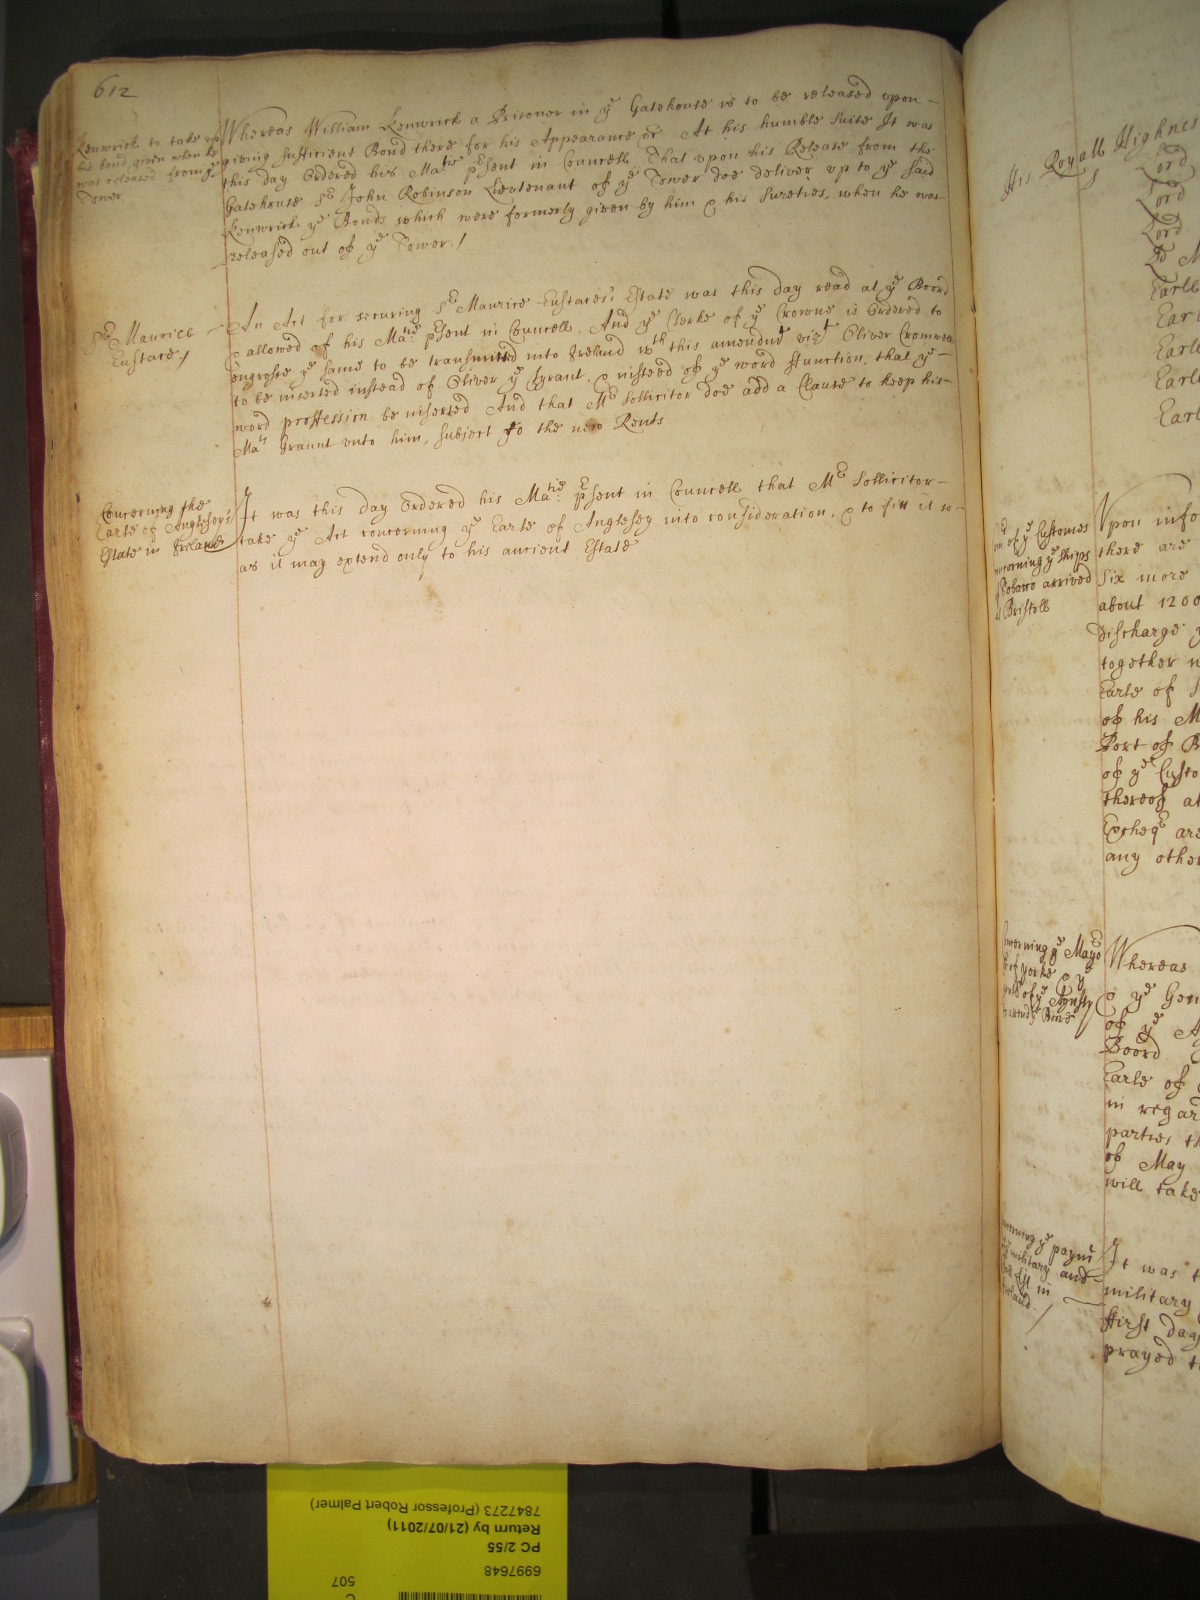 612
Lenwrick to take up
his bond given when he
was released from ye
Tower
Whereas William Lenwrick a Prisoner in ye Gatehouse is to be released upon
giveing sufficient Bond there for his Appearance &c At his humble suite It was
this day Ordered his Matie psent in Councell That upon his Release from the
Gatehouse Sr John Robinson Lieutenant of ye Tower doe deliver up to ye said
Lenwrick ye Bonds which were formerly given by him & his Sureties, when he was
released out of ye Tower./
Sr Maurice
Eustace/
An Act for securing Sr Maurice Eustaces's Estate was this day read at ye Boord
& allowed of his Matie psent in Councell, And ye Clerke of ye Crowne is Ordered to
engrosse ye same to be transmitted into Ireland wth this amendmt vizt Oliver Cromwell
to be inserted instead of Oliver ye Tyrant, & insteed of ye word ffunction, that ye
word proffession be inserted And that Mr Sollicitor doe add a Clause to keep his
Mats Graunt unto him, subject to the new Rents
Concerning the
Earle of Anglesey's
Estate in Ireland
It was this day Ordered his Matie psent in Councell that Mr Sollicitor
take ye Act concerning ye Earle of Anglesey into consideration, & to fitt it so
as it may extend only to his ancient Estate
His Royall Highnes
Lord
Lord
Lord
Ld M
Earle
Earl
Earle
Earle
Earle
of ye Customes
concerning ye Ships
Tobacco arrived
Bristoll
Upon info
there are
Six more
about 1200
Discharge y
together w
Earle of S
of his M
Port of B
of ye Custo
thereof at
Excheqr are
any other
concerning ye Mayor
of Yorke &
of ye
Whereas
& ye Gove
of ye A
Boord
Earle of
in regar
parties th
of May
will take
ye paymt
military and
list in
Ireland
It was t
military
ffirst day
prayed t
7847273 (Professor Robert Palmer)
Return by (21/07/2011)
PC 2/55
6997648
507
C